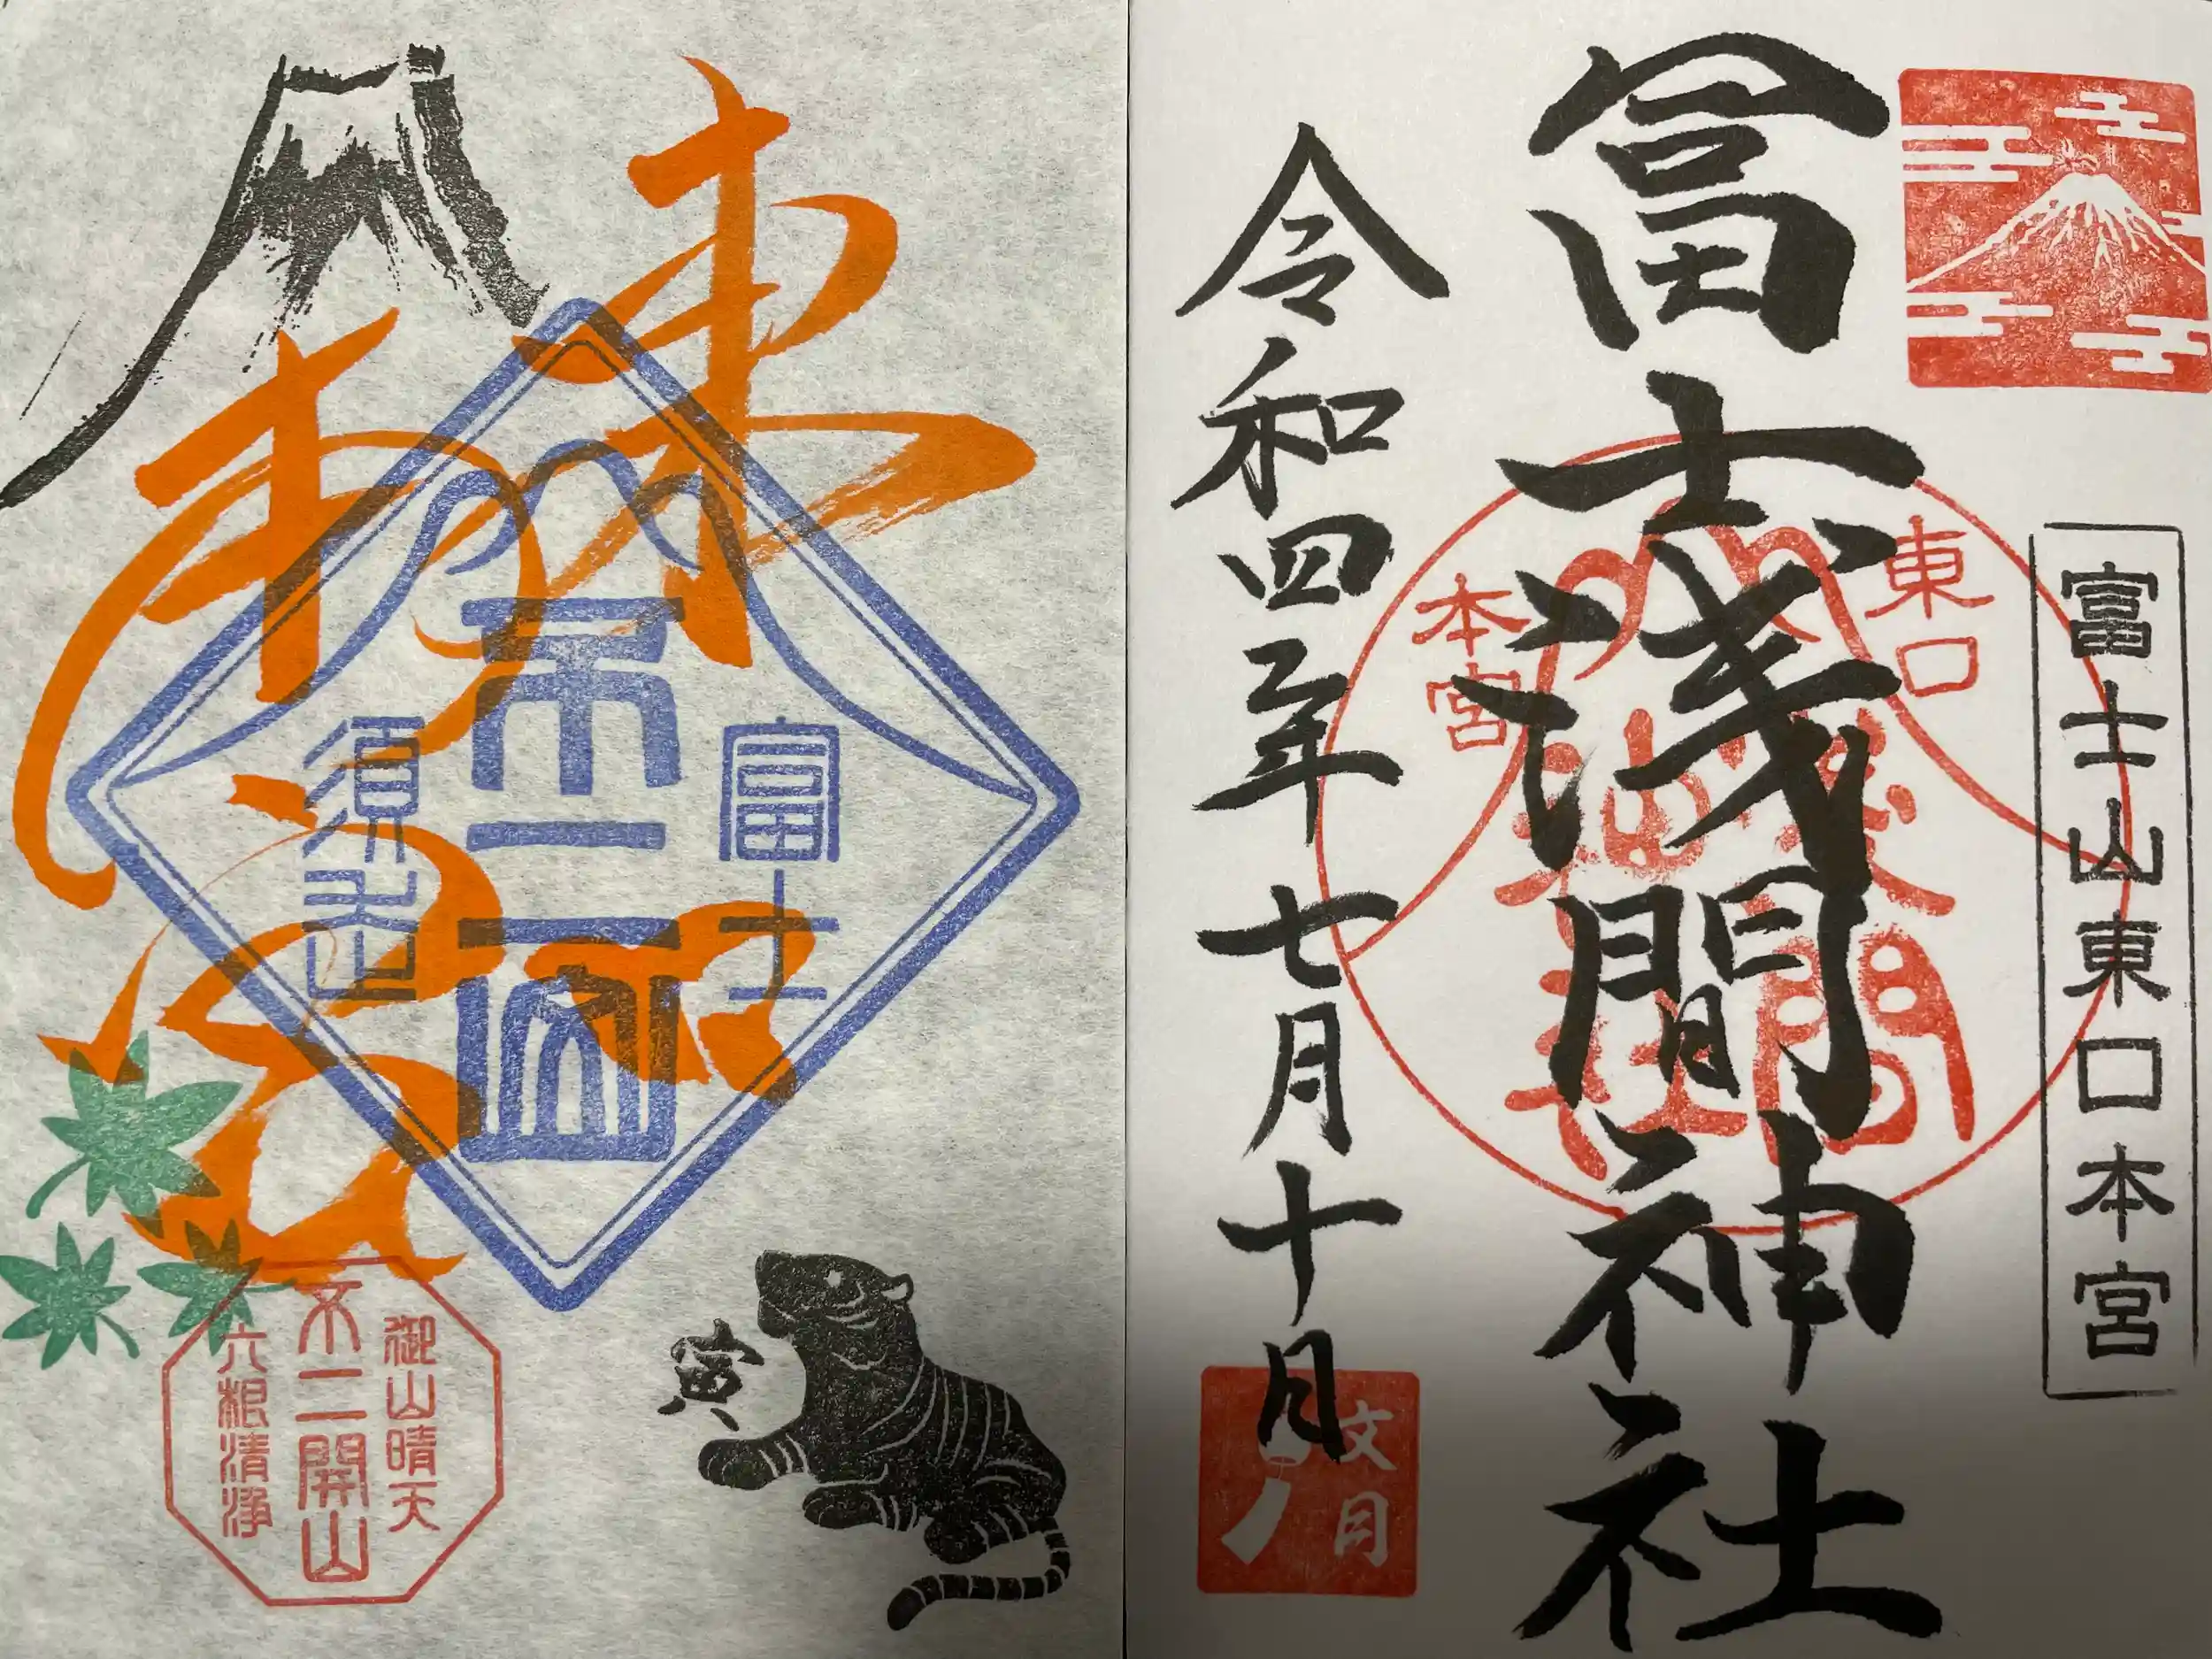 富士山東口本宮
冨士浅間神社
東口
本宮
令和四年七月十日
文月
東口
本宮
富士
須走
御山晴天
不二開山
六根清浄
寅